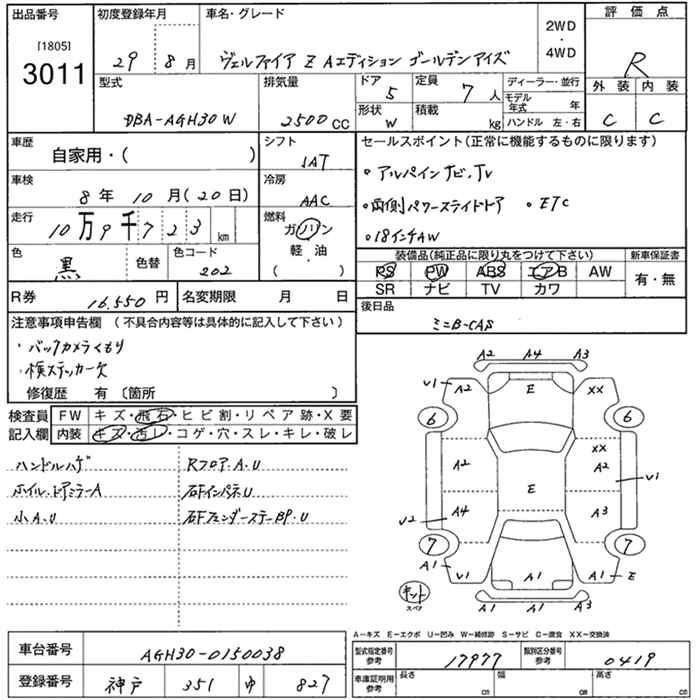 出品番号
[1805]
3011
初度登録年月
29 8月
車名・グレード
ヴェルファイア Z Aエディション ゴールデンアイズ
2WD
・
4WD
評価点
R
外装 内装
C C
型式
DBA-AGH30W
排気量
2500CC
ドア
5
定員
7人
形状
W
積載
kg
ディーラー・並行
モデル年式 年
ハンドル 左・右
車歴
自家用・( )
シフト
IAT
車検
8年10月(20日)
冷房
AAC
走行
10万9千723km
燃料
ガソリン
軽・油
( ・ )
色
黒
色替
色コード
202
R券
16,550円
名変期限 月 日
セールスポイント(正常に機能するものに限ります)
・アルパインナビ,TV
・両側パワースライドドア ・ETC
・18インチAW
装備品(純正品に限り丸をつけて下さい)
新車保証書
PS PW ABS エアB AW
SR ナビ TV カワ
有・無
後日品
ミニB-CAS
注意事項申告欄(不具合内容等は具体的に記入して下さい)
・バックカメラくもり
・横ステッカー欠
修復歴 有(箇所 )
検査員記入欄
FW キズ・飛石・ヒビ割・リペア跡・X要
内装 キズ・汚レ・コゲ・穴・スレ・キレ・破レ
ハンドルハゲ
ホイル,ドアミラーA
小A.U
Rフロア.A.U
右Fインパネ U
右Fフェンダーステー BP.U
A2 A4 A3
V1 A2 E XX
6 6
A2 XX A2 V1
E
V2 A4 A3
7 7
A1 V1 A1 A1 E
キット
スペア
A1 A1 A1
A-キズ E-エクボ U-凹み W-補修跡 S-サビ C-腐食 XX-交換済
車台番号
AGH30-0150038
登録番号
神戸 351 ゆ 827
型式指定番号
参考
17977
類別区分番号
参考
0419
車庫証明用
参考
長さ cm
幅 cm
高さ cm